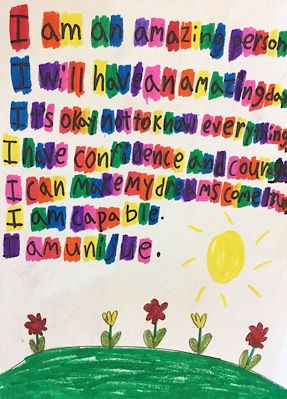 I am an amazing person
I will have an amazing day
It's okay not to know everything
I have confidence and courage
I can make my dreams come true
I am capable.
I am unique.